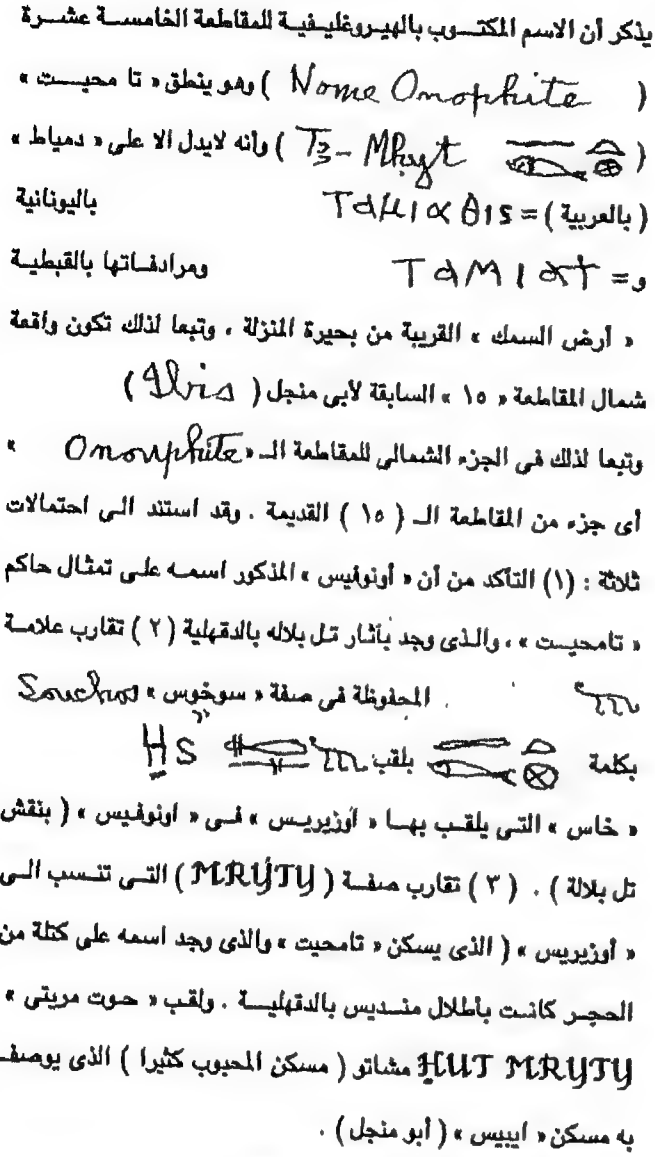 يذكر أن الاسم المكتـــوب بالهيـروغليـفيـة للمقاطعة الخامســة عشــرة
( Nome Onophite ) وهو ينطق « تا محيـــت »
( T3 - Mhyt ) وأنه لايدل الا على « دمياط »
( بالعربية ) = Tαμιαθις باليونانية
و = ТАМІАТ ومرادفـاتها بالقبطيـة
« أرض السمك » القريبة من بحيرة المنزلة ، وتبعا لذلك تكون واقعة
شمال المقاطعة « ١٥ » السابقة لأبى منجل ( Ibis )
وتبعا لذلك فى الجزء الشمالى للمقاطعة الـ « Onouphite »
أى جزء من المقاطعة الـ ( ١٥ ) القديمة . وقد استند الى احتمالات
ثلاثة : (١) التأكد من أن « أونوفيس » المذكور اسمـه علـى تمثـال حاكم
« تامحيـست » ، والـذى وجد بآثـار تـل بلاله بالدقهلية ( ٢ ) تقارب علامـة
المحفوظة فى صفة « سوخوس » Souchos
بكلمة بلقب HS
« خاس » التـى يلقـب بهـا « أوزيريـس » فـى « اونوفيس » ( بنقش
تل بلالة ) . ( ٣ ) تقارب صفـة ( MRYTY ) التـى تنـسب الـى
« أوزيريس » ( الذى يسكن « تامحيت » والذى وجد اسمه على كتلة من
الحجـر كانـت بأطلال منـديس بالدقهليـة . ولقب « حوت مريتى »
HUT MRYTY مشاتو ( مسكن المحبوب كثيرا ) الذى يوصف
به مسكن « ايبيس » ( أبو منجل ) .